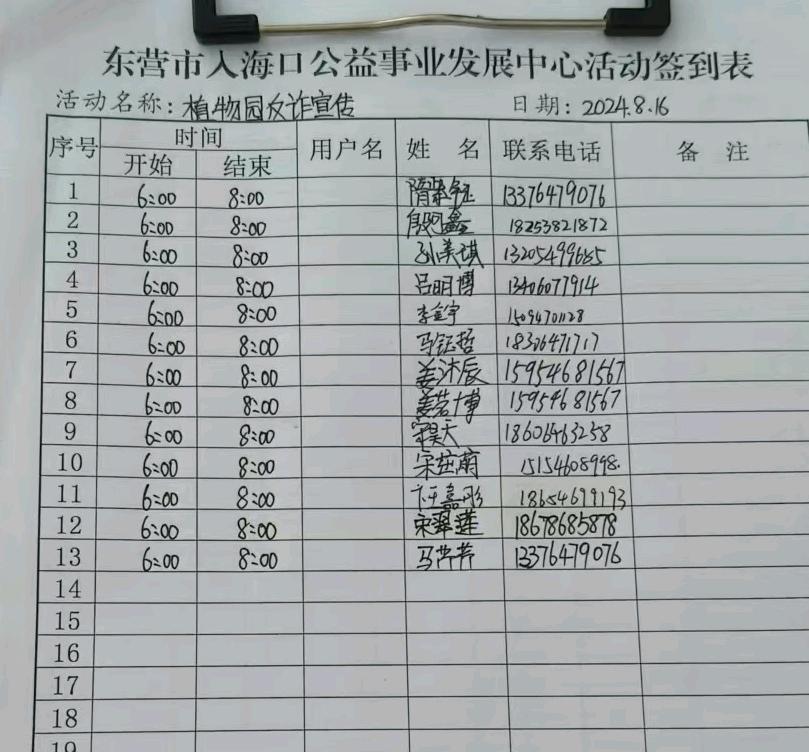 东营市入海口公益事业发展中心活动签到表
活动名称：植物园反诈宣传 日期：2024.8.16
序号 时间 用户名 姓 名 联系电话 备 注
开始 结束
1 6:00 8:00 13376479076
2 6:00 8:00 殷鑫 18253821872
3 6:00 8:00 孙美琪
4 6:00 8:00 吕明博 13406077914
5 6:00 8:00 李金宇 15094701128
6 6:00 8:00 马钰哲 18306471717
7 6:00 8:00 姜沐辰 15954681567
8 6:00 8:00 姜茗博 15954681567
9 6:00 8:00 宋昊天 18606463258
10 6:00 8:00 15154608998
11 6:00 8:00 18654699193
12 6:00 8:00 宋翠莲 18678685878
13 6:00 8:00 马芹芹 13376479076
14
15
16
17
18
19